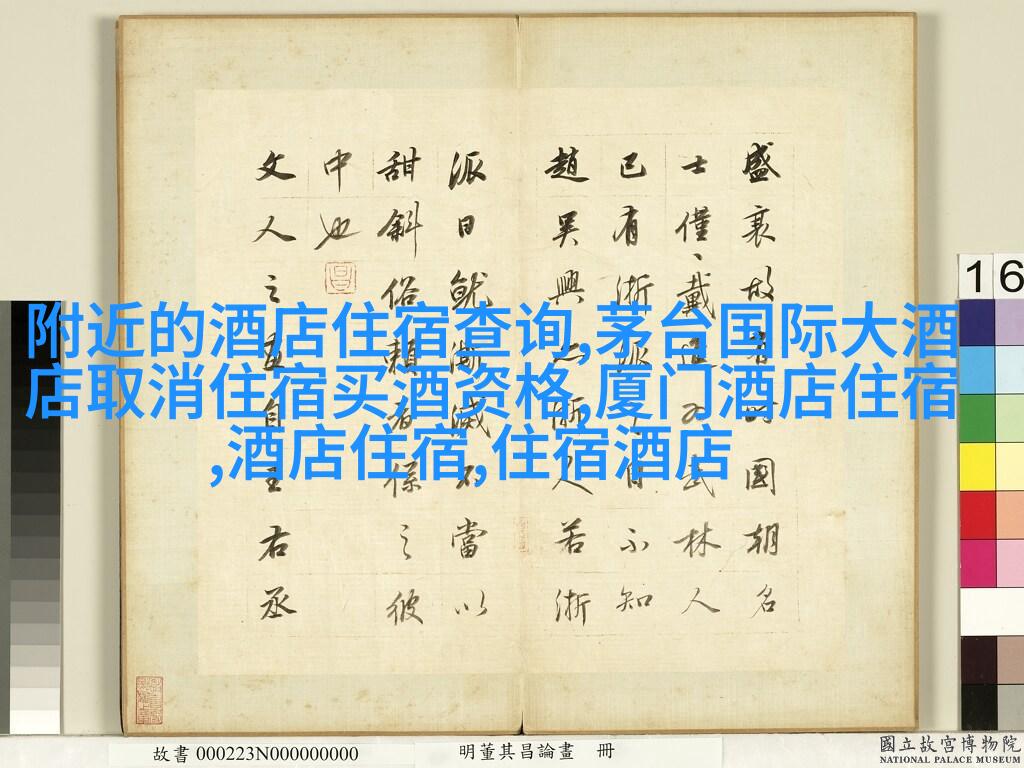 附近的酒店住宿查询,茅台国际大酒
店取消住宿买酒资格,厦门酒店住宿
,酒店住宿,住宿酒店
盛衰故有時國朝名
士僅、戴進为武林人
已有浙派之目不知
趙吳興亦浙人若浙
派日就澌滅不當以
甜斜俗賴者係之彼
中也
文人之畫自王右丞
16
故書 000223N000000000
明董其昌論畫 冊
國立故宮博物院
NATIONAL PALACE MUSEUM